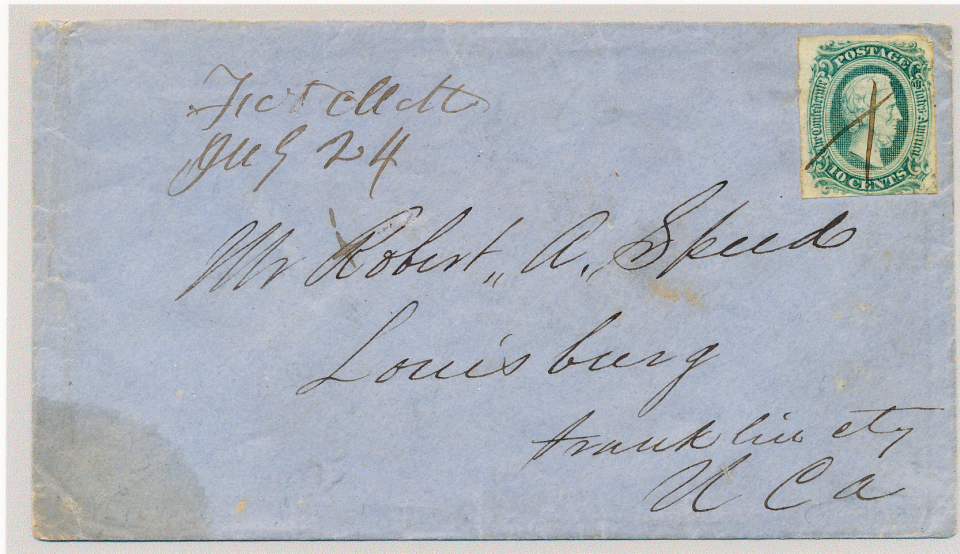 Aug 24
POSTAGE
The Confederate States of America
10 CENTS
Mr Robert A, Speed
Louisburg
Franklin cty
N Ca